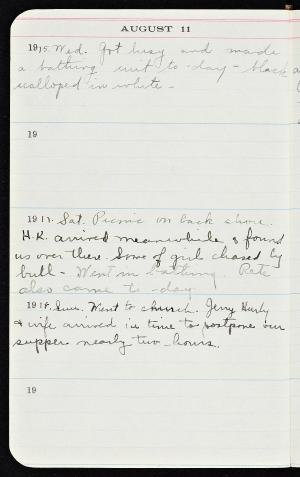 AUGUST 11
1915. Wed. Got busy and made
a bathing suit to-day - black
scalloped in white -
19
1917. Sat. Picnic on back shore.
H.K. arrived meanwhile & found
us over there. Some of girls chased by
bull - Went in bathing. Pete
also came to-day
1918. Sun. Went to church. Jerry Hurly
& wife arrived in time to postpone our
supper nearly two hours.
19